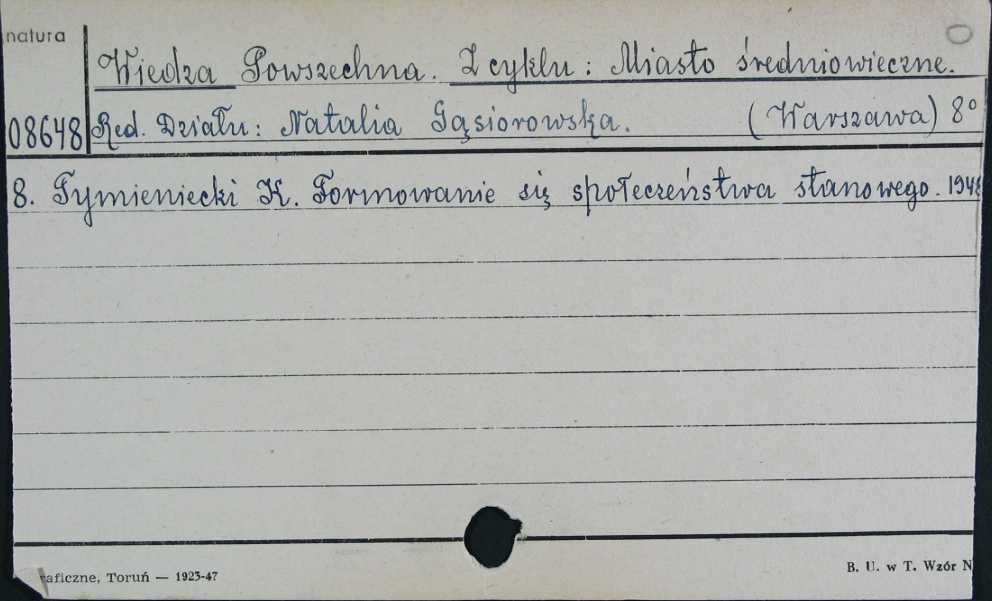 natura
Wiedza Powszechna. Z cyklu: Miasto średniowieczne.
08648 Red. Działu: Natalia Gąsiorowska. (Warszawa) 8°
8. Tymieniecki K. Formowanie się społeczeństwa stanowego. 1948
raficzne, Toruń — 1923-47
B. U. w T. Wzór N